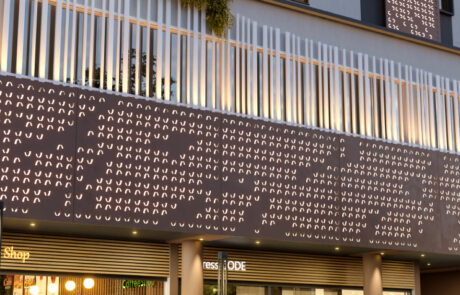 Shop
ress CODE